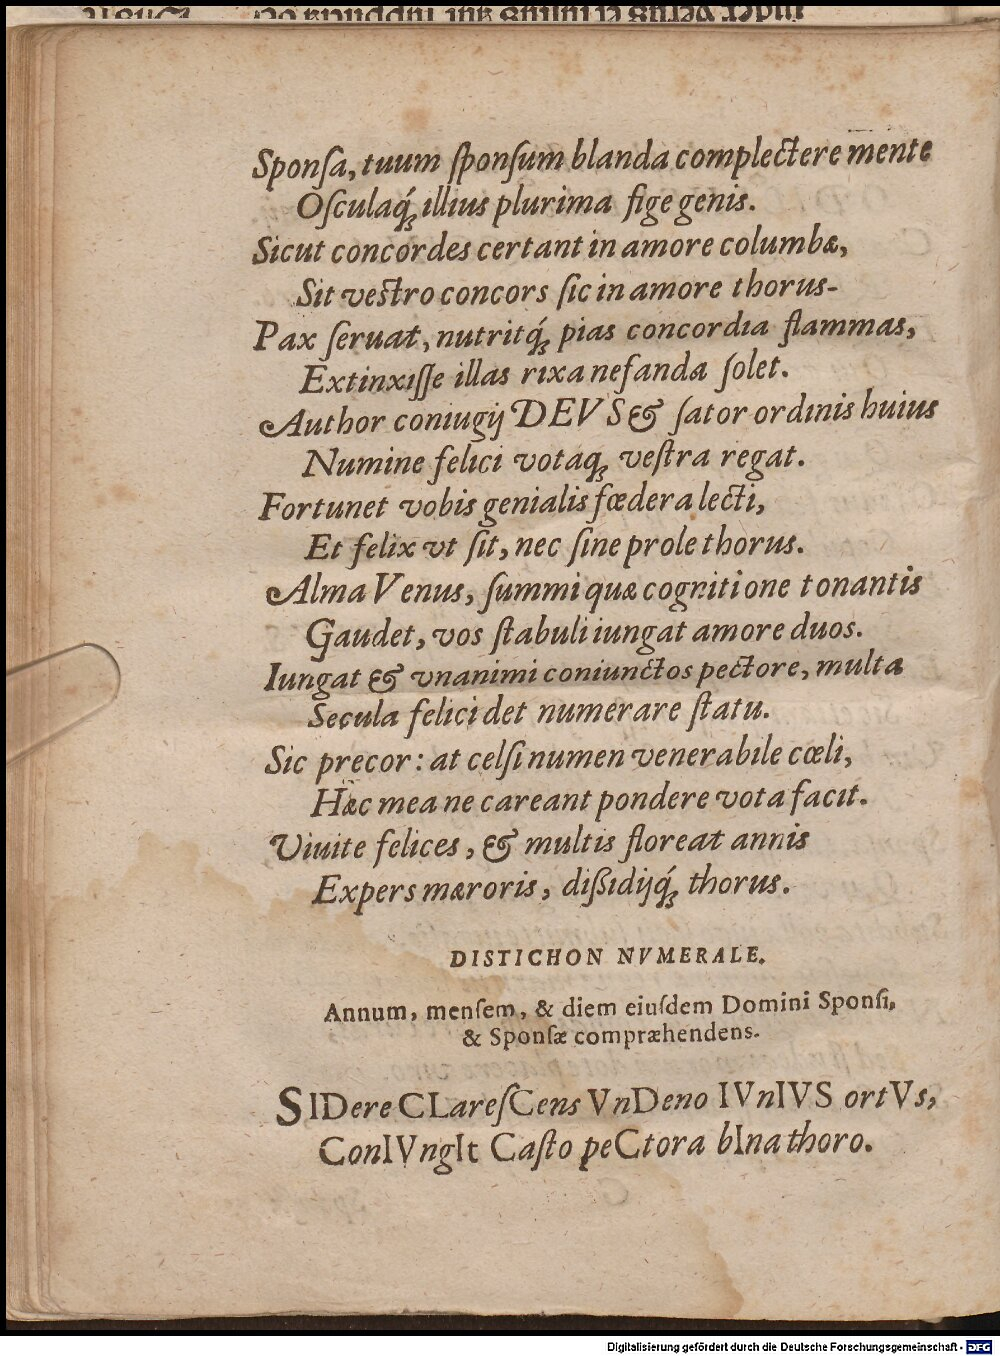 Sponſa, tuum ſponſum blanda complectere mente
Oſculaq́ꝫ illius plurima fige genis.
Sicut concordes certant in amore columbæ,
Sit veſtro concors ſic in amore thorus-
Pax ſeruat, nutritq́ꝫ pias concordia flammas,
Extinxiſſe illas rixa nefanda ſolet.
Author coniugij DEVS & ſator ordinis huius
Numine felici votaqꝫ veſtra regat.
Fortunet vobis genialis fœdera lecti,
Et felix vt ſit, nec ſine prole thorus.
Alma Venus, ſummi quæ cognitione tonantis
Gaudet, vos ſtabuli iungat amore duos.
Iungat & vnanimi coniunctos pectore, multa
Secula felici det numerare ſtatu.
Sic precor: at celſi numen venerabile cœli,
Hæc mea ne careant pondere vota facit.
Viuite felices, & multis floreat annis
Expers mæroris, diſſidijq́ꝫ thorus.
DISTICHON NVMERALE.
Annum, menſem, & diem eiuſdem Domini Sponſi,
& Sponſæ compræhendens.
SIDere CLareſCens VnDeno IVnIVS ortVs,
ConIVngIt Caſto peCtora bIna thoro.
Digitalisierung gefördert durch die Deutsche Forschungsgemeinschaft - DFG